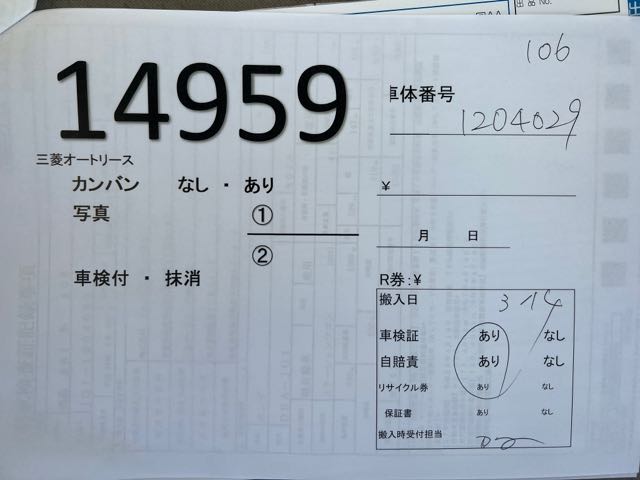 出品 No.
106
14959
車体番号
1204029
三菱オートリース
カンバン なし ・ あり
¥
写真 ①
月 日
②
車検付 ・ 抹消
R券:¥
搬入日 3 14
車検証 あり なし
自賠責 あり なし
リサイクル券 あり なし
保証書 あり なし
搬入時受付担当